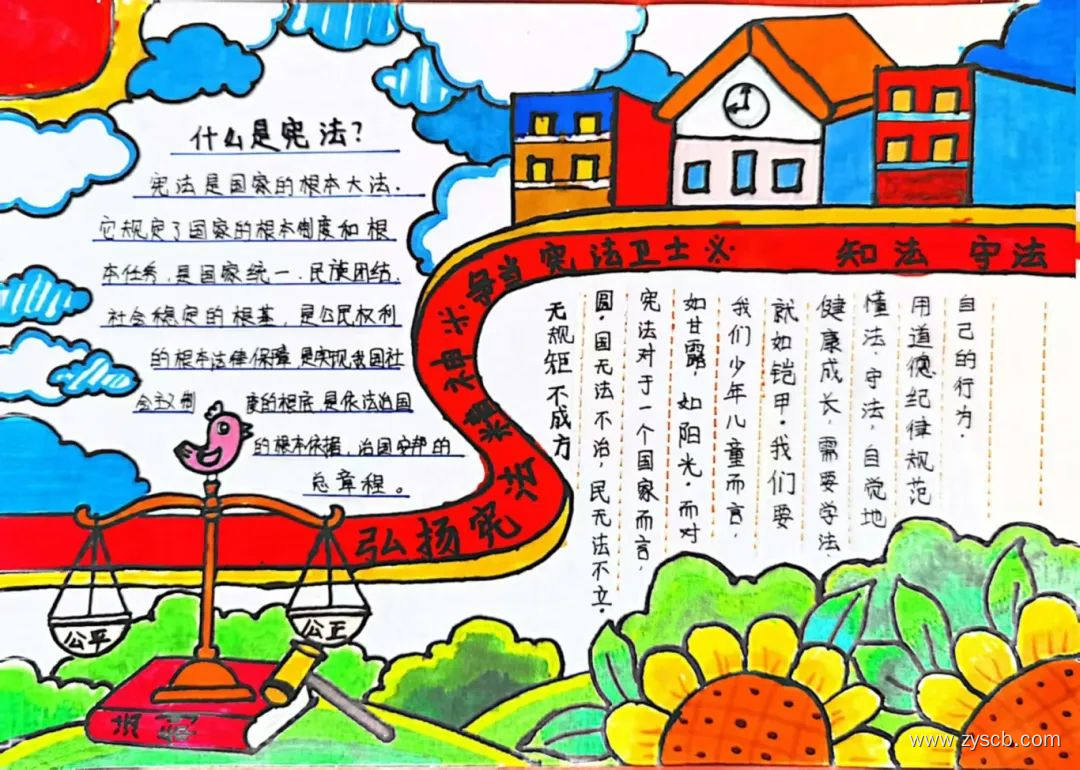 什么是宪法？
宪法是国家的根本大法．
它规定了国家的根本制度和根
本任务．是国家统一．民族团结．
社会稳定的根基，是公民权利
的根本法律保障 是实现我国社
会主义制 度的根底 是依法治国
的根本依据，治国安邦的
总章程。
弘扬宪法精神
争当宪法卫士
知法 守法
无规矩不成方
圆．国无法不治，民无法不立．
宪法对于一个国家而言，
如甘露，如阳光．而对
我们少年儿童而言，
就如铠甲．我们要
健康成长，需要学法，
懂法．守法，自觉地
用道德纪律规范
自己的行为．
公平
公正
www.zyscb.com